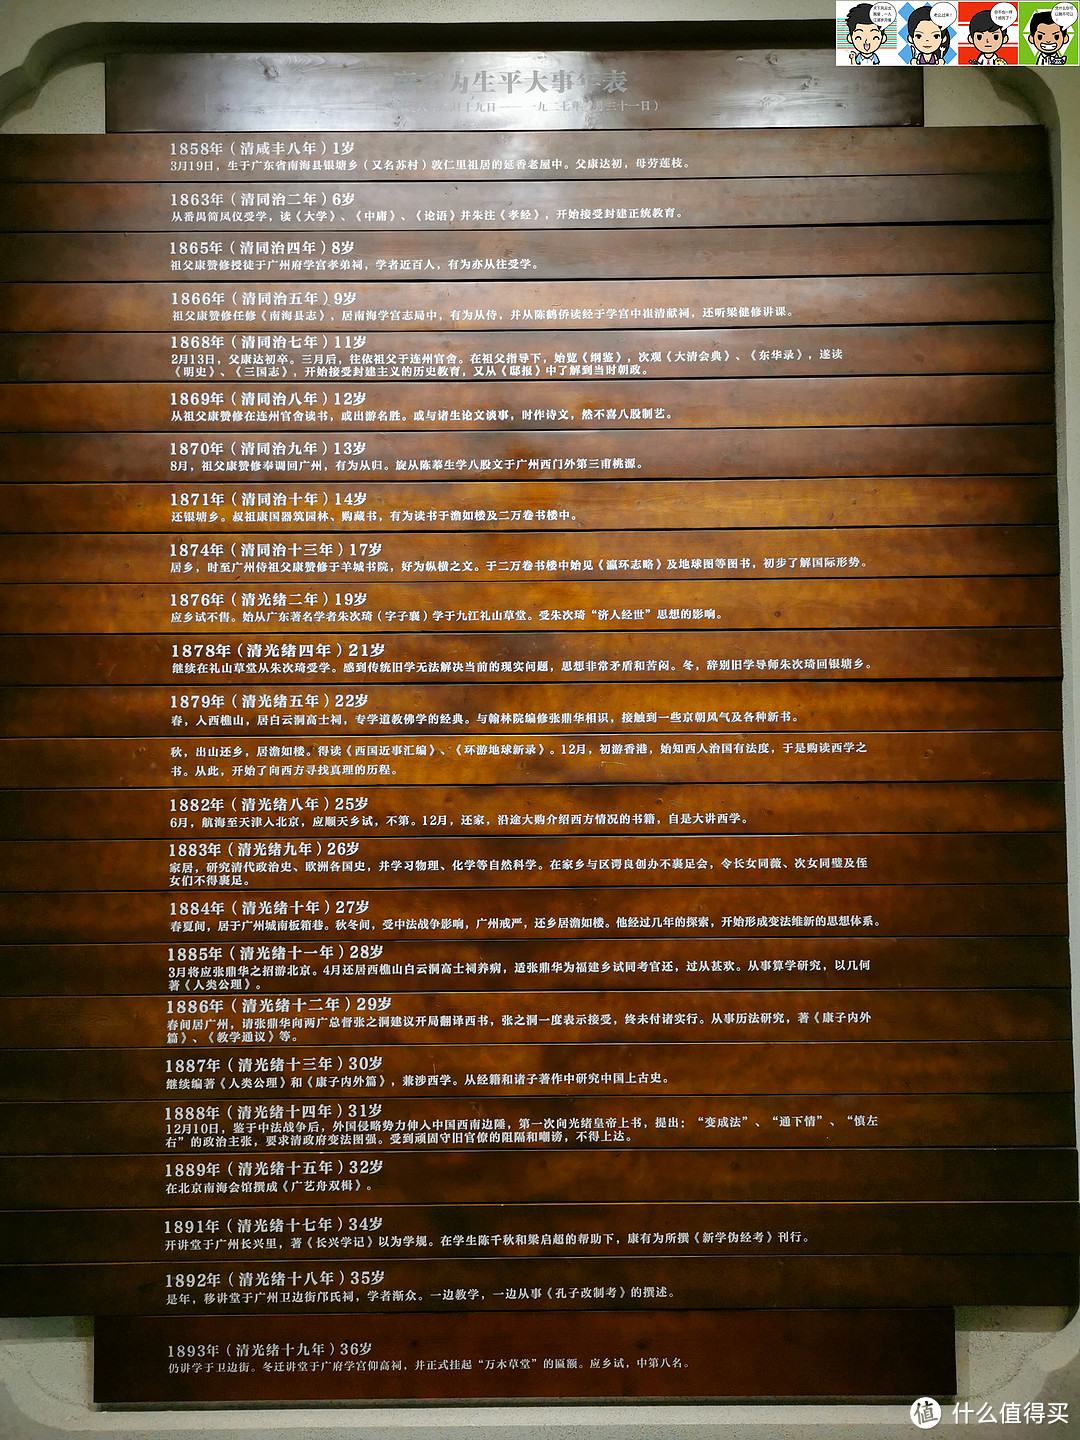 为生平大事年表
九日 —— 一九二七年 月三十一日）
1858年（清咸丰八年）1岁
3月19日，生于广东省南海县银塘乡（又名苏村）敦仁里祖居的延香老屋中。父康达初，母劳莲枝。
1863年（清同治二年）6岁
从番禺简凤仪受学，读《大学》、《中庸》、《论语》并朱注《孝经》，开始接受封建正统教育。
1865年（清同治四年）8岁
祖父康赞修授徒于广州府学宫孝弟祠，学者近百人，有为亦从往受学。
1866年（清同治五年）9岁
祖父康赞修任修《南海县志》，居南海学宫志局中，有为从侍，并从陈鹤侨读经于学宫中崔清献祠，还听梁健修讲课。
1868年（清同治七年）11岁
2月13日，父康达初卒。三月后，往依祖父于连州官舍。在祖父指导下，始览《纲鉴》，次观《大清会典》、《东华录》，遂读
《明史》、《三国志》，开始接受封建主义的历史教育，又从《邸报》中了解到当时朝政。
1869年（清同治八年）12岁
从祖父康赞修在连州官舍读书，或出游名胜。或与诸生论文谈事，时作诗文，然不喜八股制艺。
1870年（清同治九年）13岁
8月，祖父康赞修奉调回广州，有为从归。旋从陈菶生学八股文于广州西门外第三甫桃源。
1871年（清同治十年）14岁
还银塘乡。叔祖康国器筑园林、购藏书，有为读书于澹如楼及二万卷书楼中。
1874年（清同治十三年）17岁
居乡，时至广州侍祖父康赞修于羊城书院，好为纵横之文。于二万卷书楼中始见《瀛环志略》及地球图等图书，初步了解国际形势。
1876年（清光绪二年）19岁
应乡试不售。始从广东著名学者朱次琦（字子襄）学于九江礼山草堂。受朱次琦“济人经世”思想的影响。
1878年（清光绪四年）21岁
继续在礼山草堂从朱次琦受学。感到传统旧学无法解决当前的现实问题，思想非常矛盾和苦闷。冬，辞别旧学导师朱次琦回银塘乡。
1879年（清光绪五年）22岁
春，入西樵山，居白云洞高士祠，专学道教佛学的经典。与翰林院编修张鼎华相识，接触到一些京朝风气及各种新书。
秋，出山还乡，居澹如楼。得读《西国近事汇编》、《环游地球新录》。12月，初游香港，始知西人治国有法度，于是购读西学之
书。从此，开始了向西方寻找真理的历程。
1882年（清光绪八年）25岁
6月，航海至天津入北京，应顺天乡试，不第。12月，还家，沿途大购介绍西方情况的书籍，自是大讲西学。
1883年（清光绪九年）26岁
家居，研究清代政治史、欧洲各国史，并学习物理、化学等自然科学。在家乡与区谔良创办不裹足会，令长女同薇、次女同璧及侄
女们不得裹足。
1884年（清光绪十年）27岁
春夏间，居于广州城南板箱巷。秋冬间，受中法战争影响，广州戒严，还乡居澹如楼。他经过几年的探索，开始形成变法维新的思想体系。
1885年（清光绪十一年）28岁
3月将应张鼎华之招游北京。4月还居西樵山白云洞高士祠养病，适张鼎华为福建乡试同考官还，过从甚欢。从事算学研究，以几何
著《人类公理》。
1886年（清光绪十二年）29岁
春间居广州，请张鼎华向两广总督张之洞建议开局翻译西书，张之洞一度表示接受，终未付诸实行。从事历法研究，著《康子内外
篇》、《教学通议》等。
1887年（清光绪十三年）30岁
继续编著《人类公理》和《康子内外篇》，兼涉西学。从经籍和诸子著作中研究中国上古史。
1888年（清光绪十四年）31岁
12月10日，鉴于中法战争后，外国侵略势力伸入中国西南边陲，第一次向光绪皇帝上书，提出：“变成法”、“通下情”、“慎左
右”的政治主张，要求清政府变法图强。受到顽固守旧官僚的阻隔和嘲谤，不得上达。
1889年（清光绪十五年）32岁
在北京南海会馆撰成《广艺舟双楫》。
1891年（清光绪十七年）34岁
开讲堂于广州长兴里，著《长兴学记》以为学规。在学生陈千秋和梁启超的帮助下，康有为所撰《新学伪经考》刊行。
1892年（清光绪十八年）35岁
是年，移讲堂于广州卫边街邝氏祠，学者渐众。一边教学，一边从事《孔子改制考》的撰述。
1893年（清光绪十九年）36岁
仍讲学于卫边街。冬迁讲堂于广府学宫仰高祠，并正式挂起“万木草堂”的匾额。应乡试，中第八名。
值 什么值得买